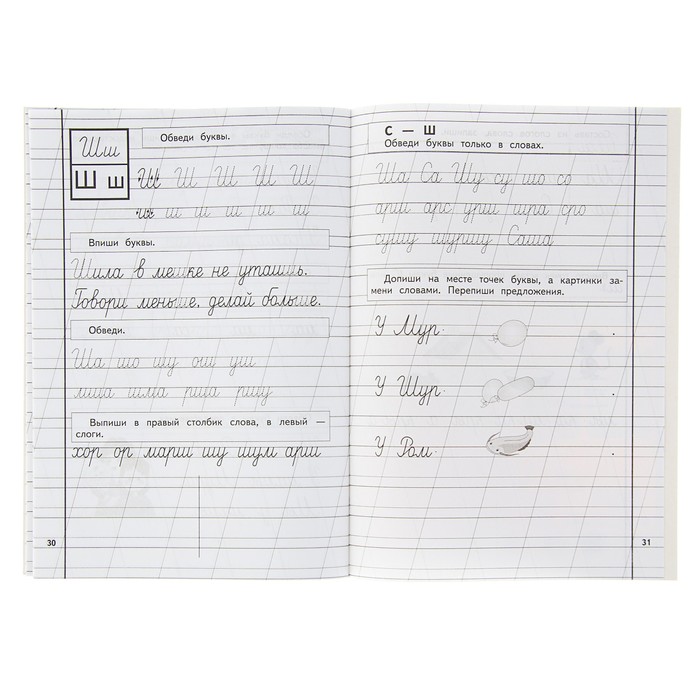 Шш
Ш ш
Обведи буквы.
Ш Ш Ш Ш Ш
ш ш ш ш ш ш
Впиши буквы.
Шила в мешке не утаишь.
Говори меньше, делай больше.
Обведи.
Ша шо шу ош уш
миша шма риша ришу
Выпиши в правый столбик слова, в левый —
слоги.
хор ор марш шу шум арш
30
С — Ш
Обведи буквы только в словах.
Ша Са Шу су шо со
арш арс урш шра сро
сушу шуршу Саша
Допиши на месте точек буквы, а картинки за-
мени словами. Перепиши предложения.
У Мур. .
У Шур. .
У Ром. .
31